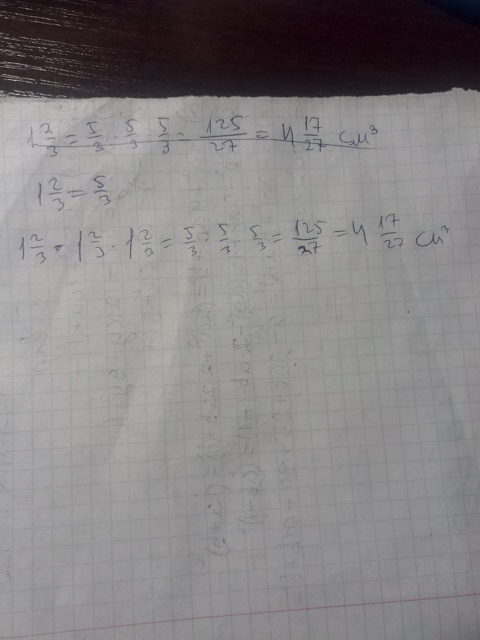 1 2/3 = 5/3 · 5/3 · 5/3 = 125/27 = 4 17/27 см³
1 2/3 = 5/3
1 2/3 · 1 2/3 · 1 2/3 = 5/3 · 5/3 · 5/3 = 125/27 = 4 17/27 см³